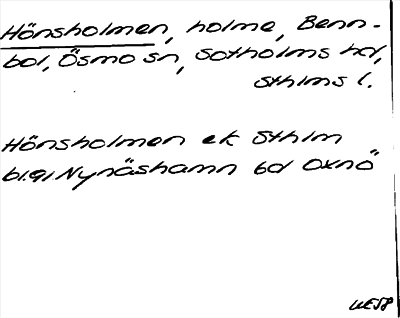 Hönsholmen, holme, Benn-
bol, Ösmo sn, Sotholms hd,
Sthlms l.
Hönsholmen ek Sthlm
bl.91 Nynäshamn bd Oxnö
WESP